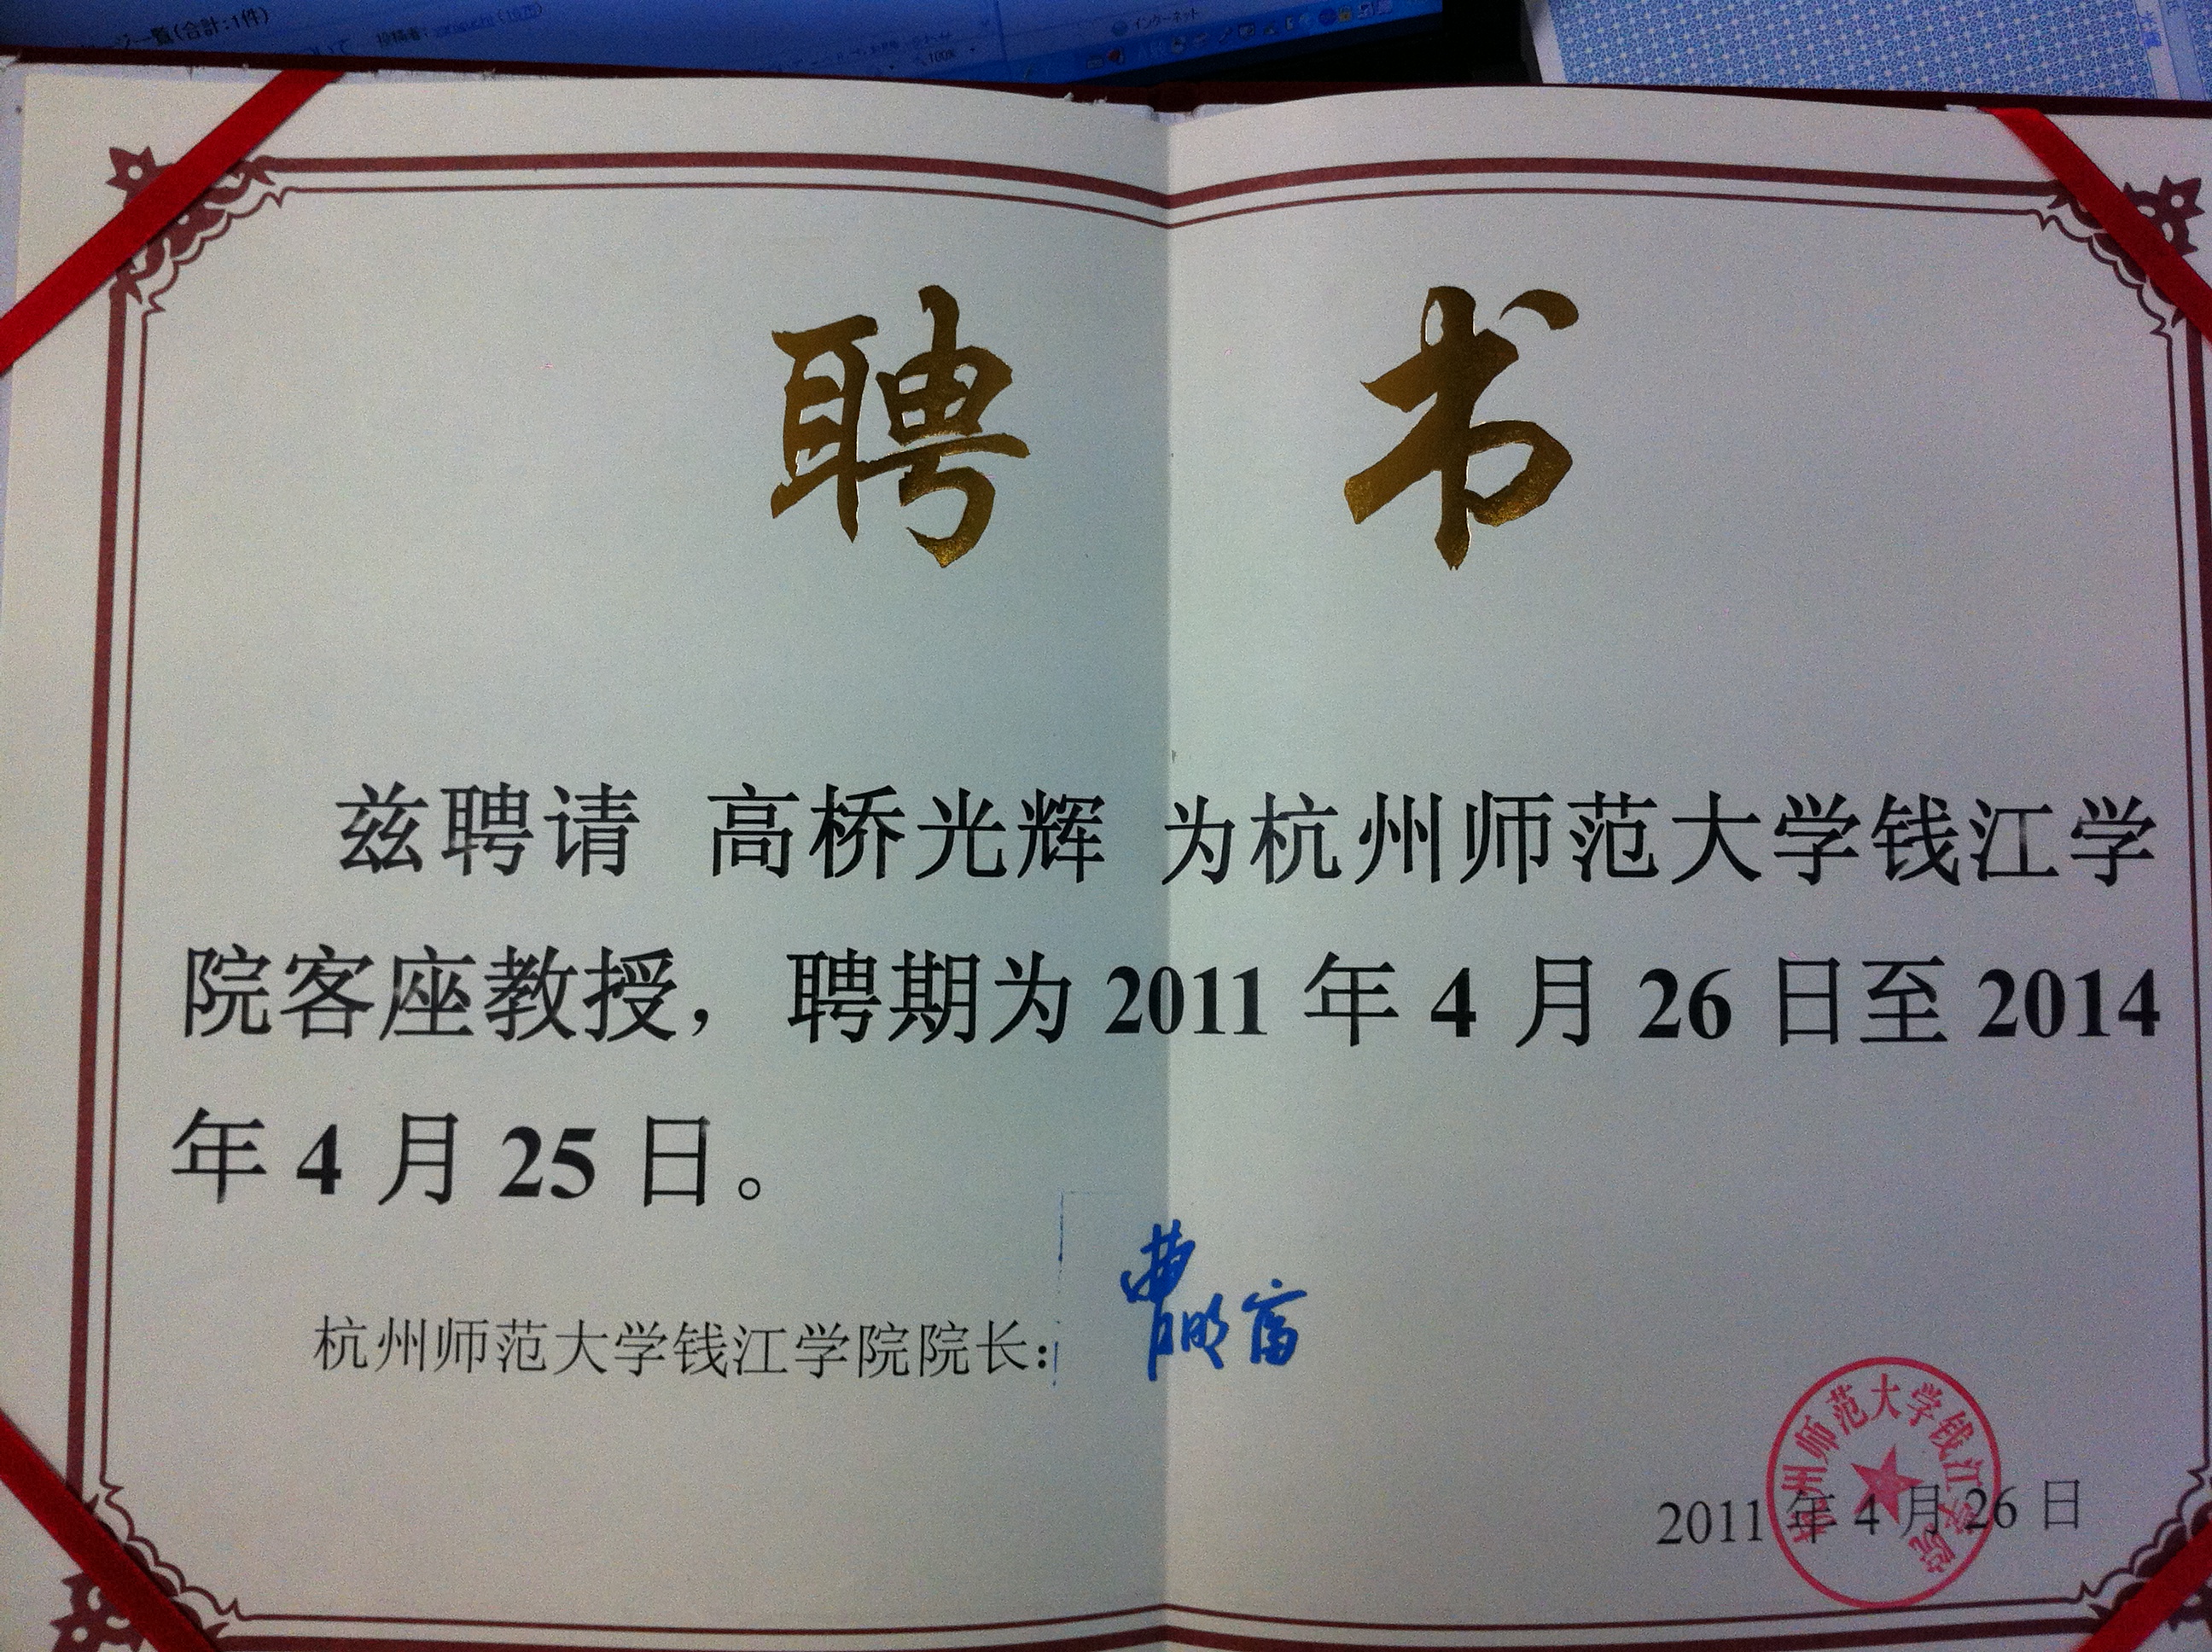 覧(合計:1件)
インターネット
100%
聘书
兹聘请 高桥光辉 为杭州师范大学钱江学
院客座教授，聘期为 2011 年 4 月 26 日至 2014
年 4 月 25 日。
杭州师范大学钱江学院院长：
曹明富
杭州师范大学钱江学院
2011 年 4 月 26 日